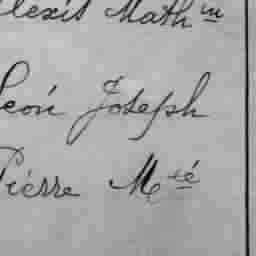 Alexis Math in
Léon Joseph
Pierre M té